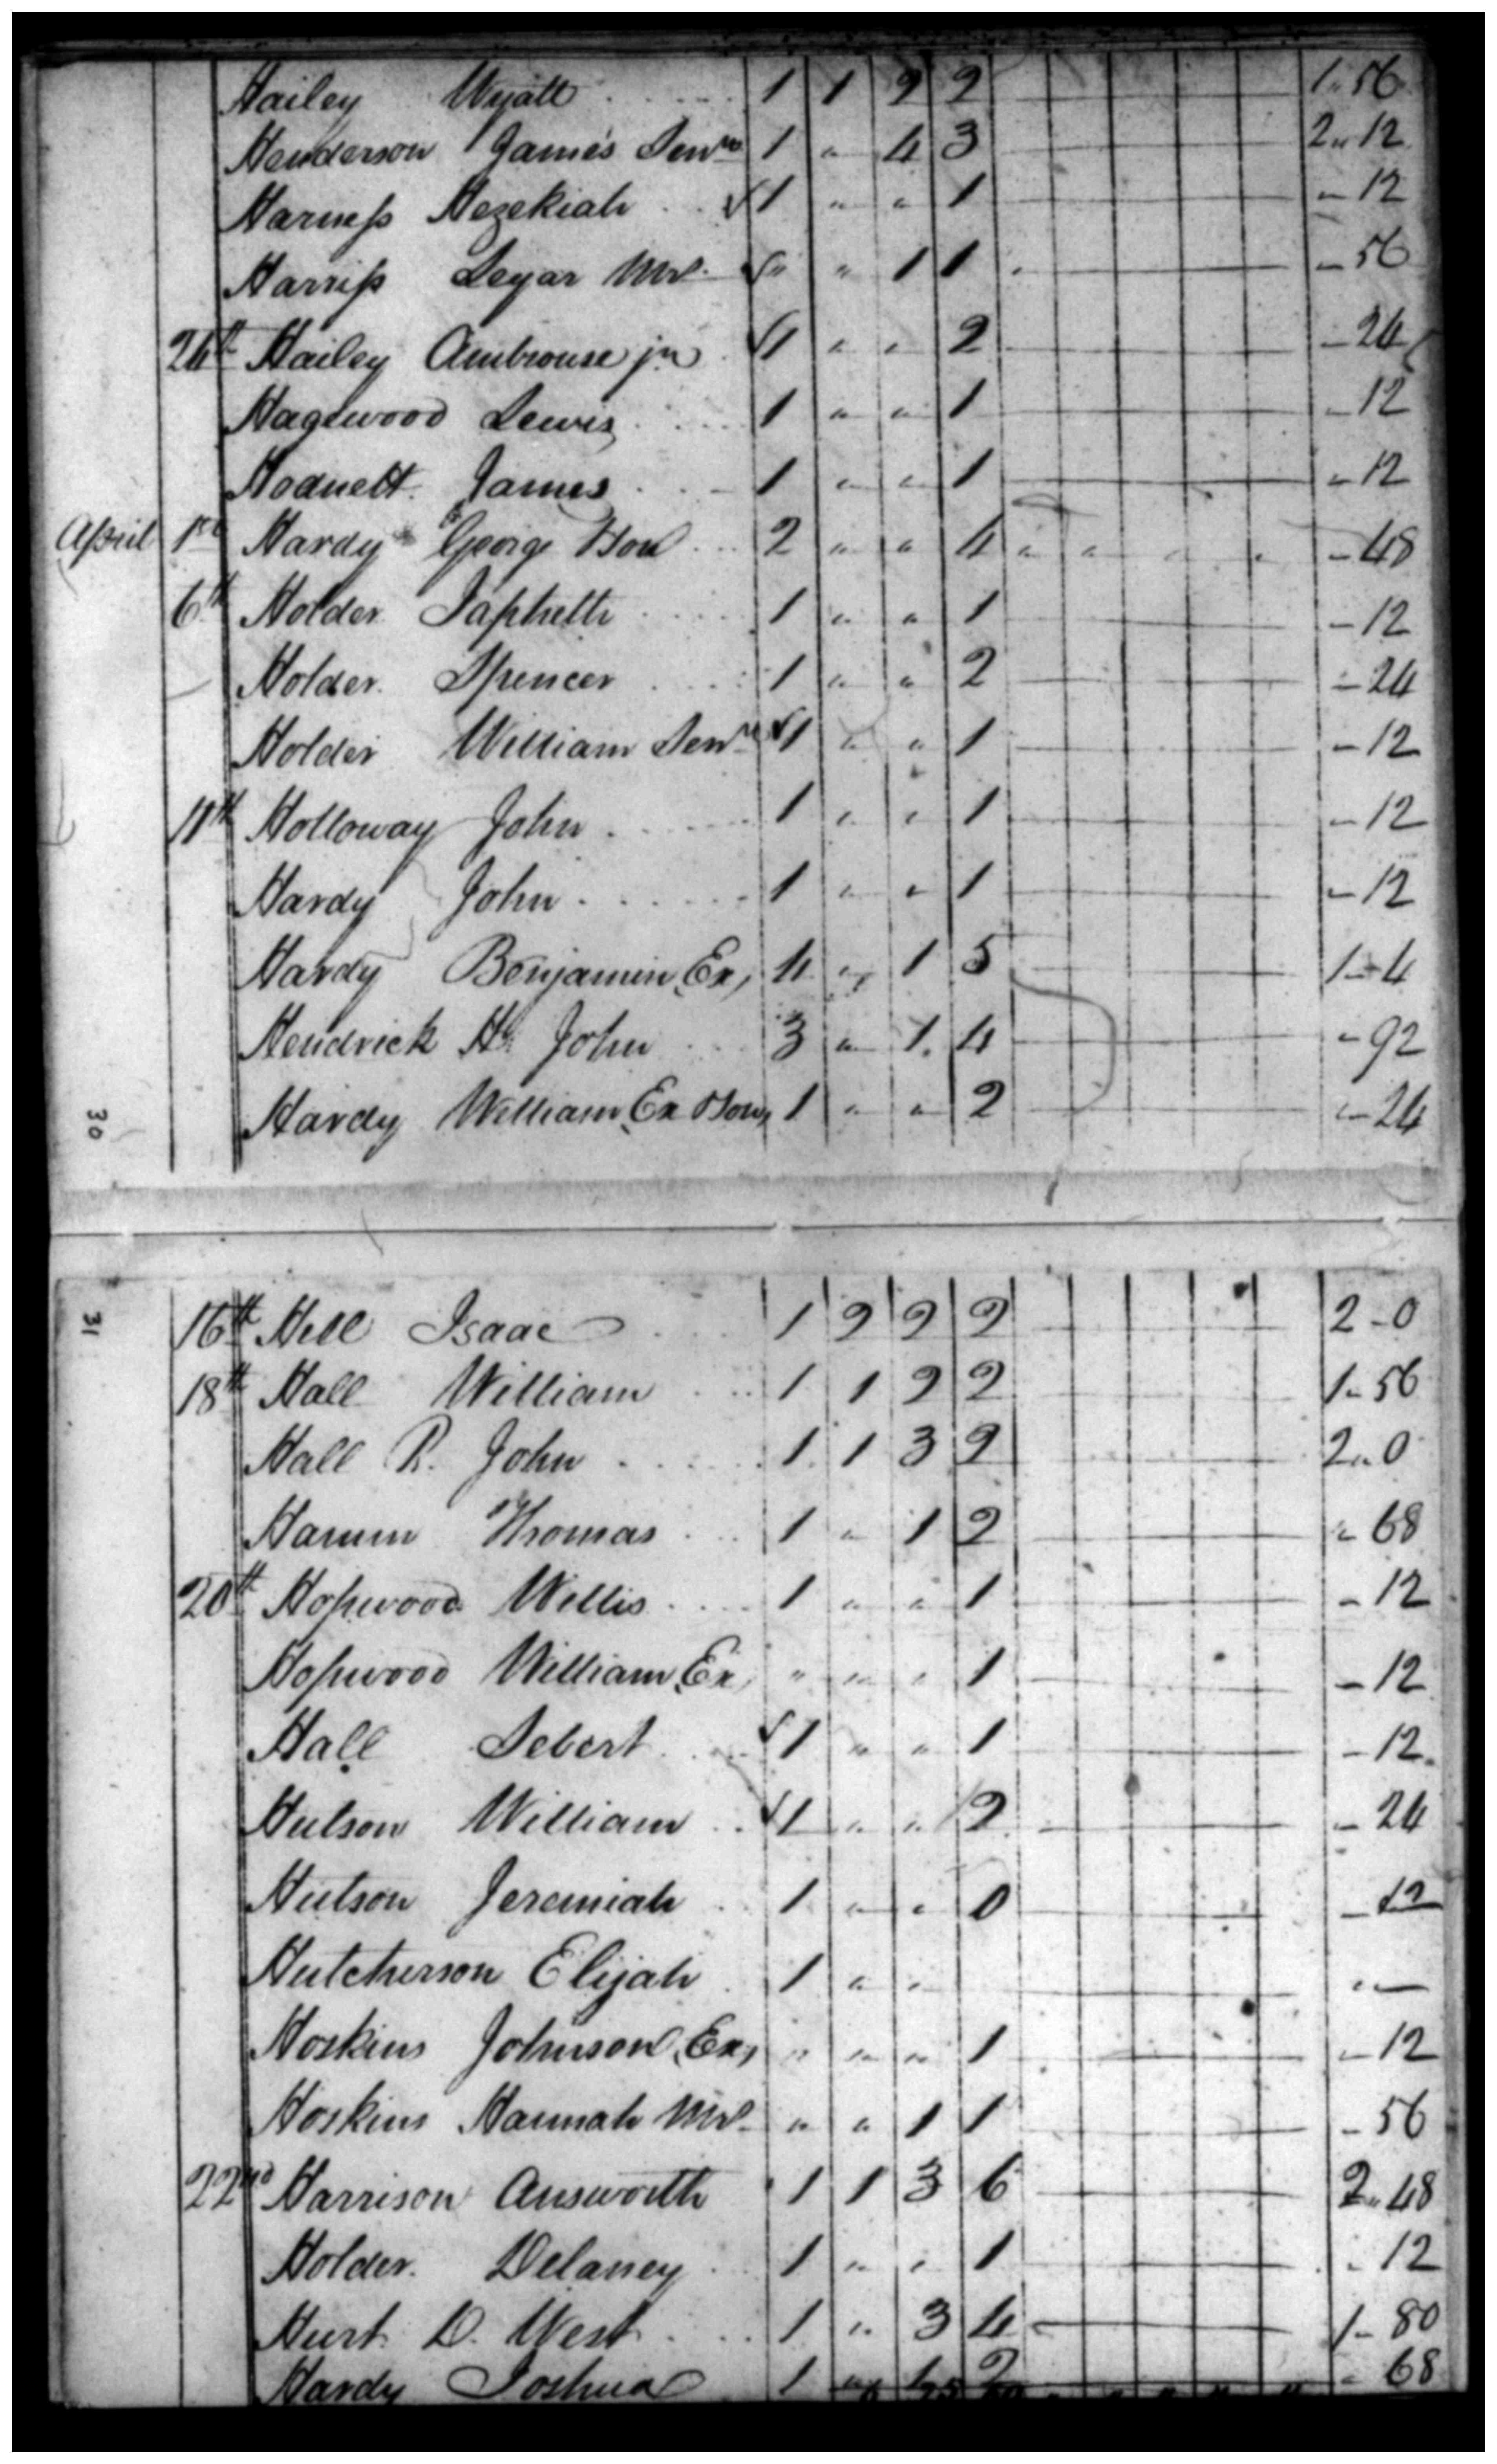 Hailey Wyatt 1 1 2 2 1" 56
Henderson James Senr 1 " 4 3 2" 12
Harness Hezekiah √ 1 " " 1 - 12
Harriss Mrs √ " " 1 1 - 56
24th Hailey Ambrouse jr √ 1 " " 2 - 24
Hagewood Lewis 1 " " 1 - 12
Hodnett James 1 " " 1 - 12
April 1st Hardy George Son 2 " " 4 " " " " - 48
6th Holder Japheth 1 " " 1 - 12
Holder Spencer 1 " " 2 - 24
Holder William Senr √ 1 " " 1 - 12
11th Holloway John 1 " " 1 - 12
Hardy John 1 " " 1 - 12
Hardy Benjamin Ex, 4 " 1 5 1 - 4
Hendrick H. John 3 " 1 4 - 92
Hardy William Ex Son, 1 " " 2 - 24
30
31
16th Hill Isaac 1 2 2 2 2 - 0
18th Hall William 1 1 2 2 1 - 56
Hall R. John 1 1 3 2 2 " 0
Hamm Thomas 1 " 1 2 " 68
20th Hopwood Willis 1 " " 1 - 12
Hopwood William Ex, " " " 1 - 12
Hall √ 1 " " 1 - 12
Hutson William √ 1 " " 2 - 24
Hutson Jeremiah 1 " " 0 - 12
Hutcherson Elijah 1 " " " -
Hoskins Johnson Ex, " " " 1 - 12
Hoskins Hannah Mrs " " 1 1 - 56
22nd Harrison Answorth 1 1 3 6 2" 48
Holder Delaney 1 " " 1 " 12
Hurt D. West 1 " 3 4 1 - 80
Hardy Joshua 1 " 1 2 " 68